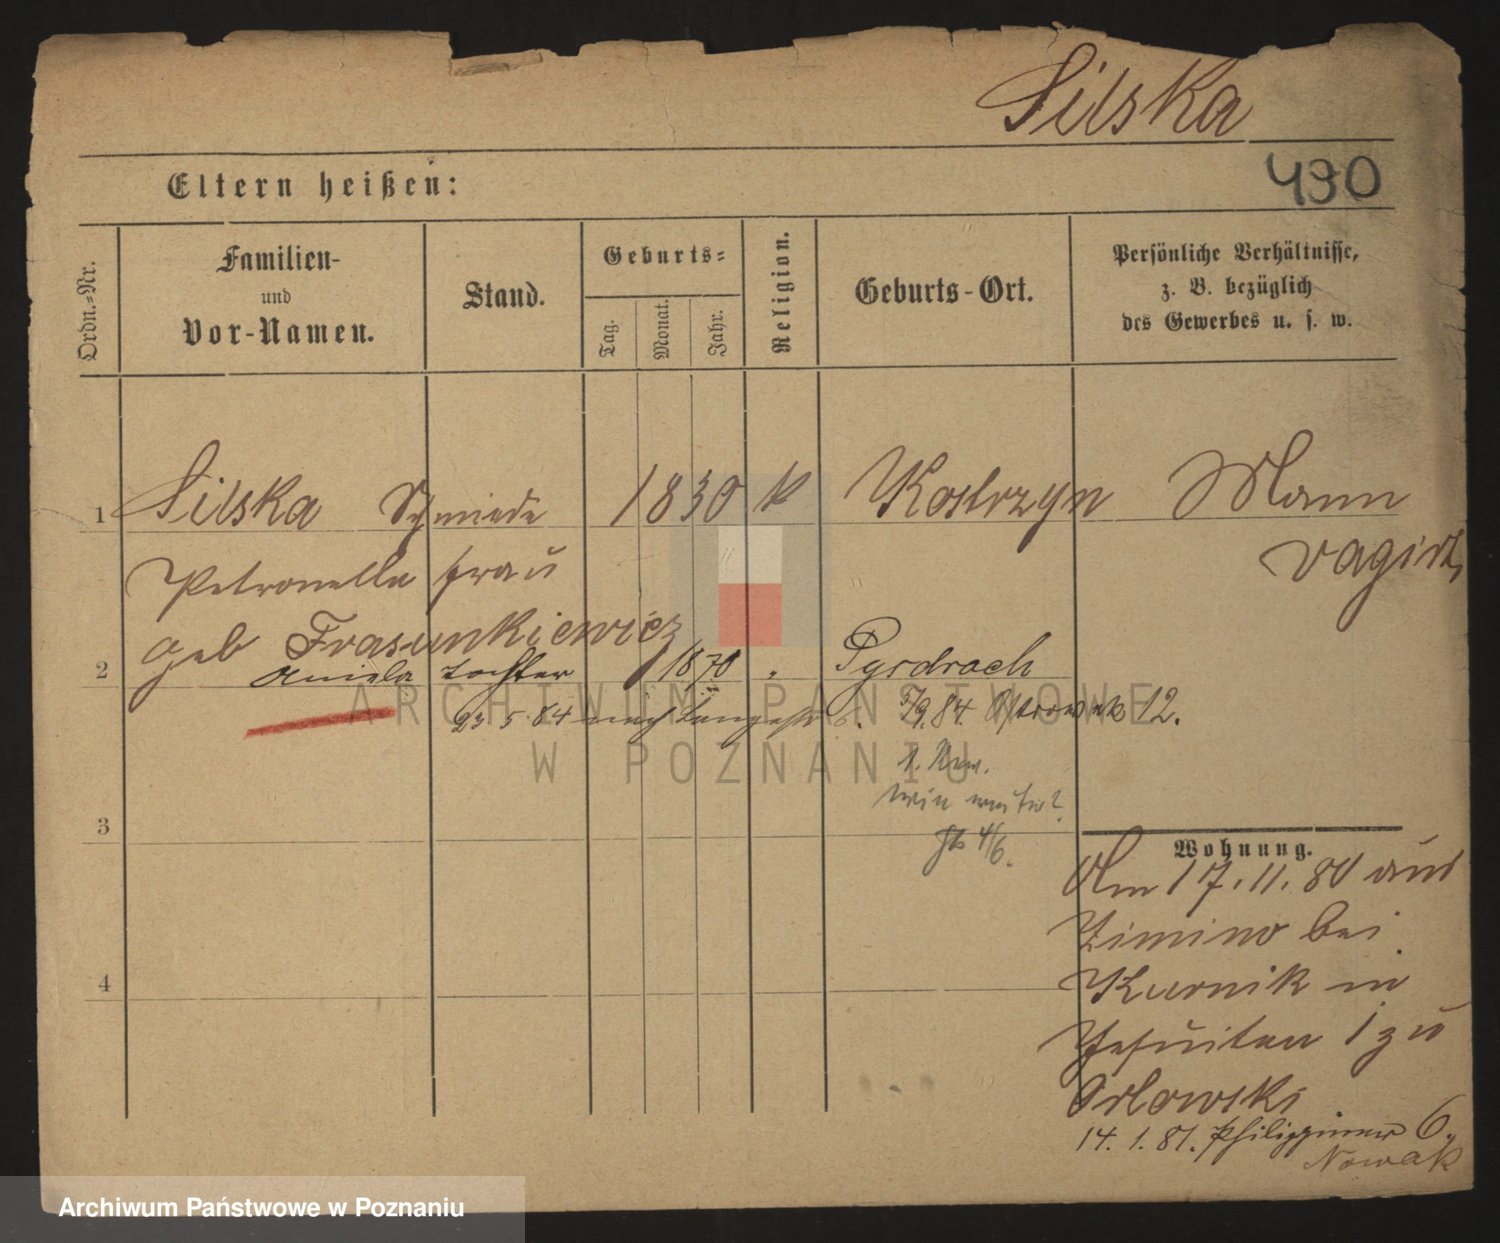 Silska
490
Eltern heißen:
Ordn.-Nr.
Familien-
und
Vor-Namen.
Stand.
Geburts-
Tag.
Monat.
Jahr.
Religion.
Geburts-Ort.
Persönliche Verhältnisse,
z. B. bezüglich
des Gewerbes u. s. w.
1 Silska Schmiede 1830 k Kostrzyn Mann
Petronella frau vagirt
geb Frasunkiewicz
2 Aniela Tochter 1870 " Pyrdroch
23. 5. 84 nach 5/9. 84. Ostrowek 12.
3
4
Wohnung.
Am 17. 11. 80 aus
Zimino bei
Kurnik in
Jesuiten 1 zu
Orlowski
14. 1. 81. Philippinen 6.
Nowak
ARCHIWUM PAŃSTWOWE
W POZNANIU
Archiwum Państwowe w Poznaniu